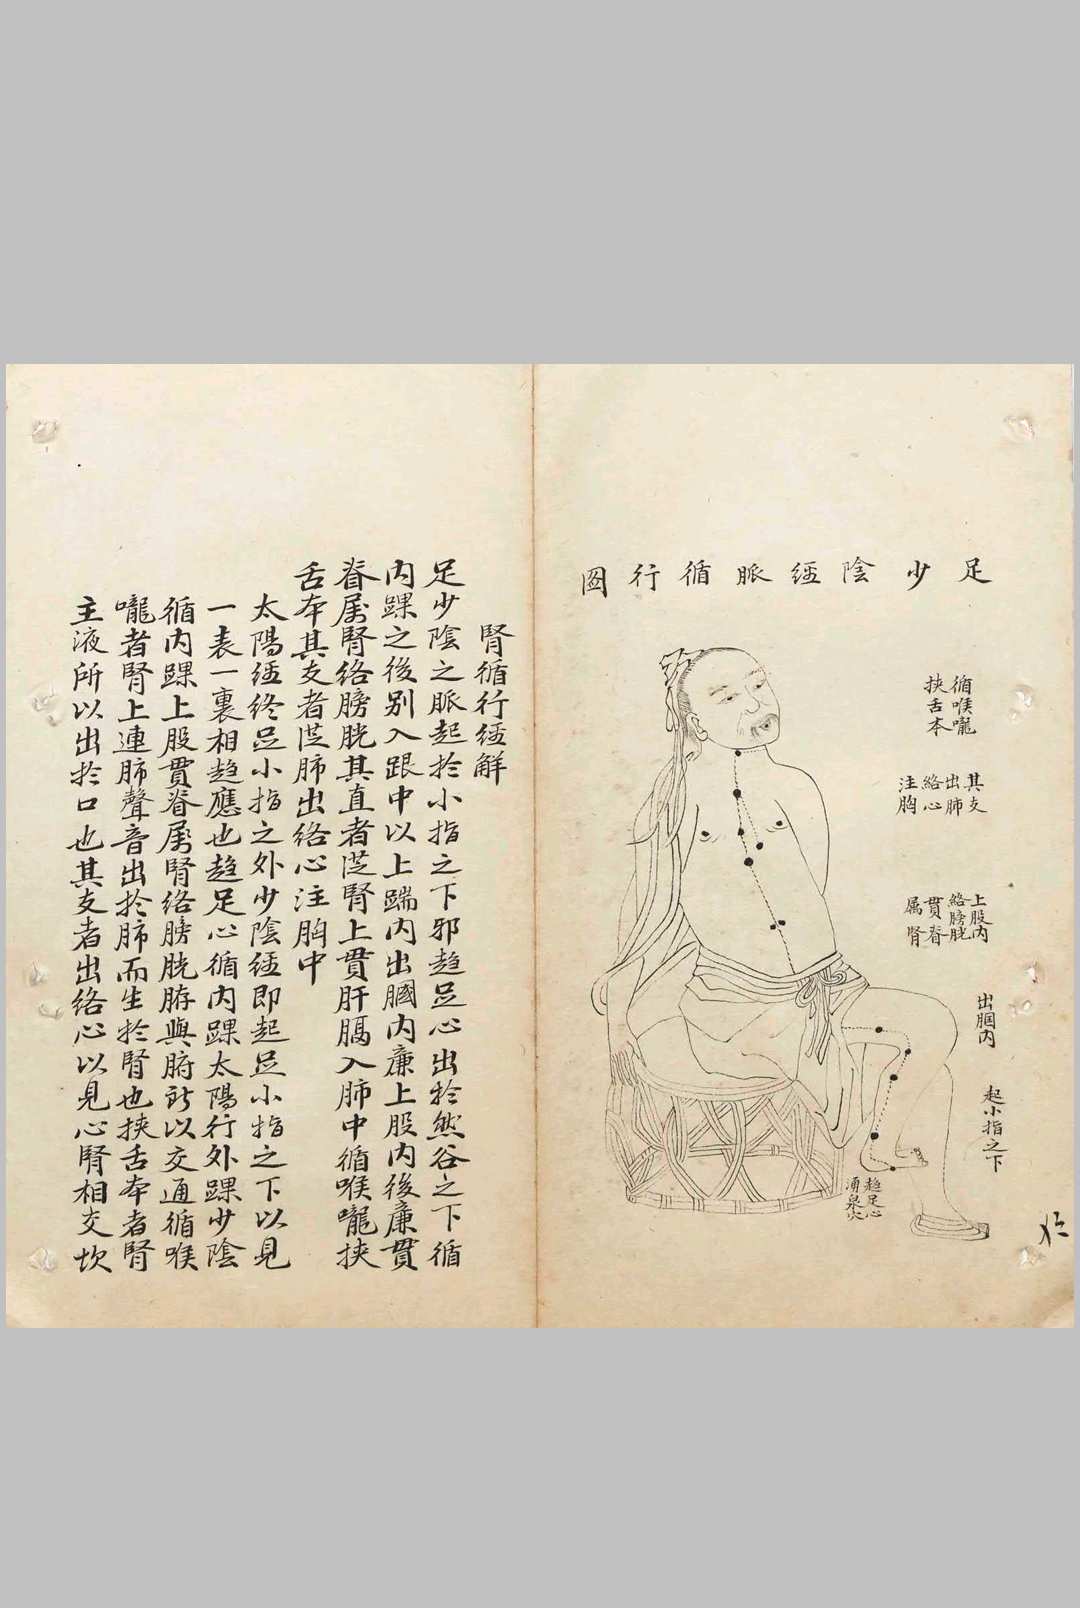 足少陰經脈循行圖
循喉嚨
挾舌本
其支
出肺
絡心
注胸
上股內
絡膀胱
貫脊
属腎
出膕內
起小指之下
趨足心
湧泉穴
腎循行經解
足少陰之脈起於小指之下邪趨足心出於然谷之下循
內踝之後別入跟中以上踹內出膕內廉上股內後廉貫
脊属腎絡膀胱其直者從腎上貫肝膈入肺中循喉嚨挾
舌本其支者從肺出絡心注胸中
太陽經終足小指之外少陰經即起足小指之下以見
一表一裏相趨應也趨足心循內踝太陽行外踝少陰
循內踝上股貫脊属腎絡膀胱臓與腑所以交通循喉
嚨者腎上連肺聲音出於肺而生於腎也挾舌本者腎
主液所以出於口也其支者出絡心以見心腎相交坎